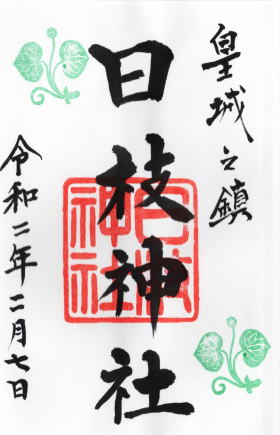 皇城之鎮
日枝神社
日枝神社
令和二年二月七日